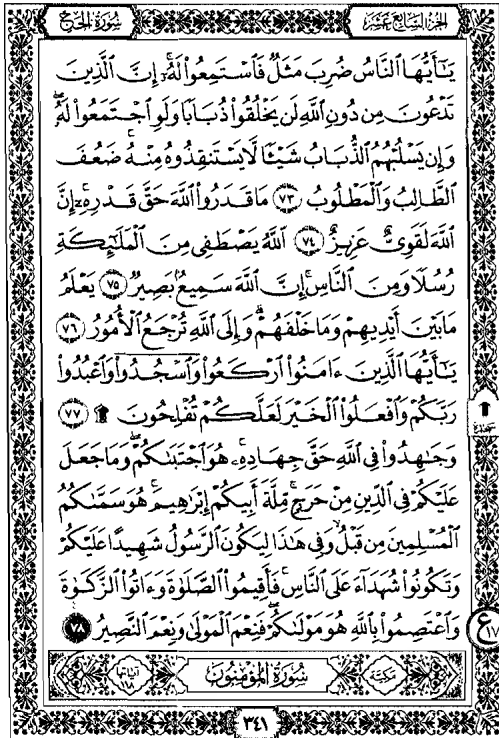 سُورَةُ الحَجّ الجُزْءُ السَّابِعَ عَشَرَ
يَٰٓأَيُّهَا ٱلنَّاسُ ضُرِبَ مَثَلٌ فَٱسْتَمِعُوا۟ لَهُۥٓ ۚ إِنَّ ٱلَّذِينَ
تَدْعُونَ مِن دُونِ ٱللَّهِ لَن يَخْلُقُوا۟ ذُبَابًا وَلَوِ ٱجْتَمَعُوا۟ لَهُۥ ۖ
وَإِن يَسْلُبْهُمُ ٱلذُّبَابُ شَيْـًٔا لَّا يَسْتَنقِذُوهُ مِنْهُ ۚ ضَعُفَ
ٱلطَّالِبُ وَٱلْمَطْلُوبُ ٧٣ مَا قَدَرُوا۟ ٱللَّهَ حَقَّ قَدْرِهِۦٓ ۗ إِنَّ
ٱللَّهَ لَقَوِىٌّ عَزِيزٌ ٧٤ ٱللَّهُ يَصْطَفِى مِنَ ٱلْمَلَٰٓئِكَةِ
رُسُلًا وَمِنَ ٱلنَّاسِ ۚ إِنَّ ٱللَّهَ سَمِيعٌۢ بَصِيرٌ ٧٥ يَعْلَمُ
مَا بَيْنَ أَيْدِيهِمْ وَمَا خَلْفَهُمْ ۗ وَإِلَى ٱللَّهِ تُرْجَعُ ٱلْأُمُورُ ٧٦
يَٰٓأَيُّهَا ٱلَّذِينَ ءَامَنُوا۟ ٱرْكَعُوا۟ وَٱسْجُدُوا۟ وَٱعْبُدُوا۟
رَبَّكُمْ وَٱفْعَلُوا۟ ٱلْخَيْرَ لَعَلَّكُمْ تُفْلِحُونَ ۩ ٧٧
سجدة
وَجَٰهِدُوا۟ فِى ٱللَّهِ حَقَّ جِهَادِهِۦ ۚ هُوَ ٱجْتَبَىٰكُمْ وَمَا جَعَلَ
عَلَيْكُمْ فِى ٱلدِّينِ مِنْ حَرَجٍ ۚ مِّلَّةَ أَبِيكُمْ إِبْرَٰهِيمَ ۚ هُوَ سَمَّىٰكُمُ
ٱلْمُسْلِمِينَ مِن قَبْلُ وَفِى هَٰذَا لِيَكُونَ ٱلرَّسُولُ شَهِيدًا عَلَيْكُمْ
وَتَكُونُوا۟ شُهَدَآءَ عَلَى ٱلنَّاسِ ۚ فَأَقِيمُوا۟ ٱلصَّلَوٰةَ وَءَاتُوا۟ ٱلزَّكَوٰةَ
وَٱعْتَصِمُوا۟ بِٱللَّهِ هُوَ مَوْلَىٰكُمْ ۖ فَنِعْمَ ٱلْمَوْلَىٰ وَنِعْمَ ٱلنَّصِيرُ ٧٨
ع ١٧
مَكِّيَّة سُورَةُ المُؤْمِنُونَ آيَاتُهَا ١١٨
٣٤١